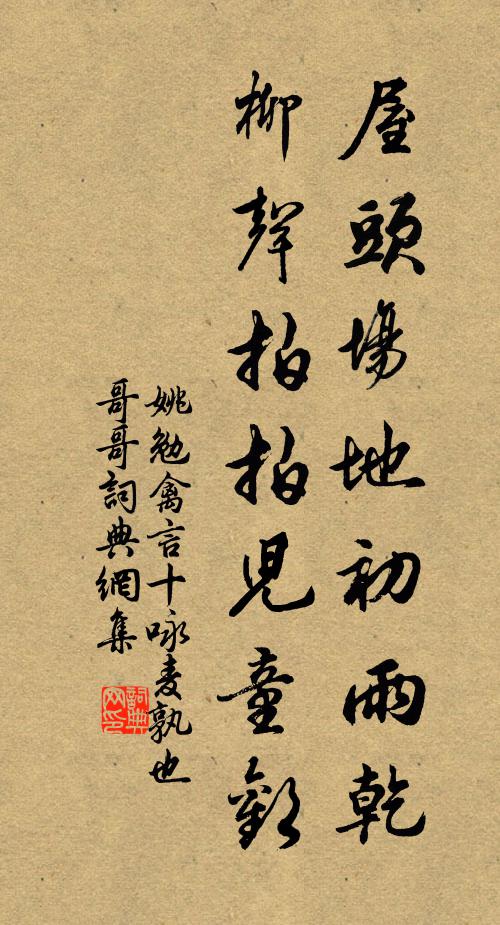 屋頭場地初雨乾
柳聲拍拍児童歡
姚勉禽言十咏麦孰也
哥哥詞典網集
詞典网印